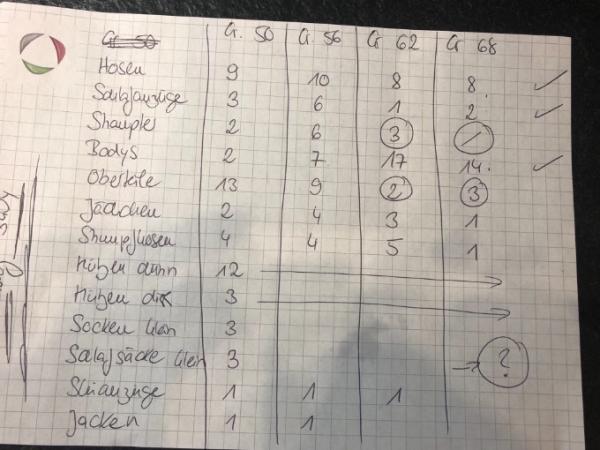 Gr. 50 Gr. 50 Gr. 56 Gr 62 Gr 68
Hosen 9 10 8 8. ✓
Schlafanzüge 3 6 1 2 ✓
Strampler 2 6 3 1
Bodys 2 7 17 14. ✓
Oberteile 13 9 2 3
Jäckchen 2 4 3 1
Strumpfhosen 4 4 5 1
Mützen dünn 12 →
Mützen dick 3 →
Socken klein 3
Schlafsäcke klein 3 → ?
Skianzüge 1 1 1
Jacken 1 1